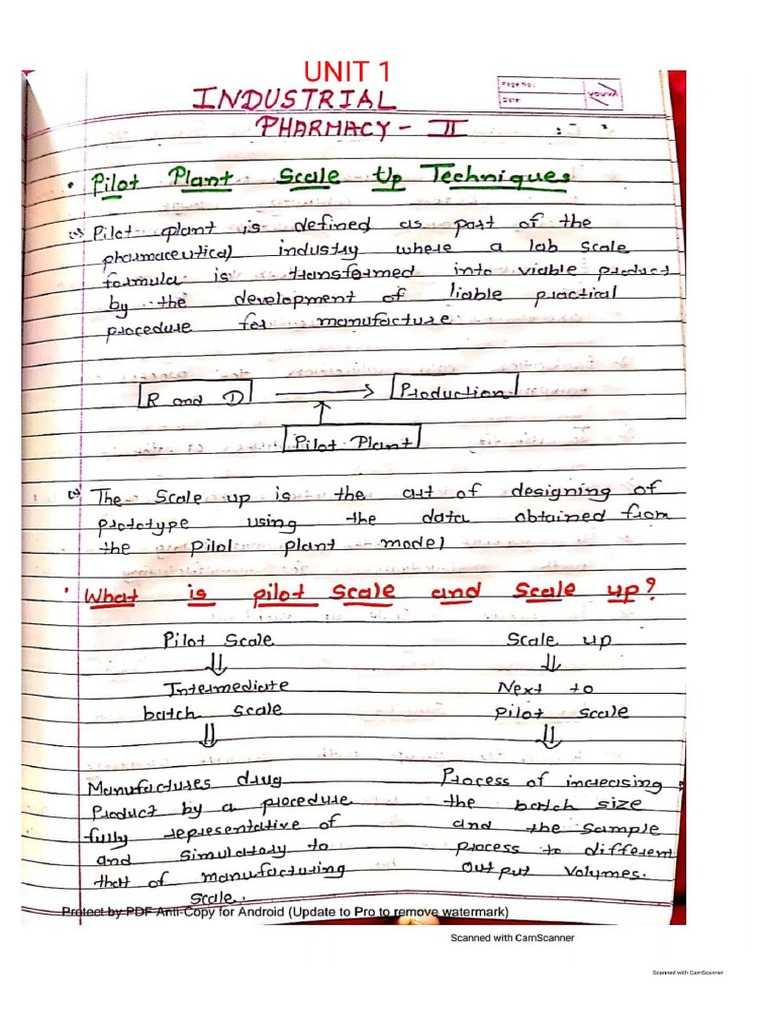 UNIT 1
INDUSTRIAL
Page No.:
Date:
YOUVA
PHARMACY - II
• Pilot Plant Scale Up Techniques
Pilot plant is defined as part of the
pharmaceutical industry where a lab scale
formula is transformed into viable product
by the development of liable practical
procedure for manufacture.
R and D → Production
↑
Pilot Plant
The Scale up is the art of designing of
prototype using the data obtained from
the Pilol plant model
• What is pilot scale and Scale up?
Pilot Scale Scale up
⇓ ⇓
Intermediate Next to
batch scale Pilot scale
⇓ ⇓
Manufactures drug Process of increasing
Product by a procedure the batch size
fully representative of and the sample
and simulatory to process to different
that of manufacturing output volumes.
scale.
Protect by PDF Anti-Copy for Android (Update to Pro to remove watermark)
Scanned with CamScanner
Scanned with CamScanner